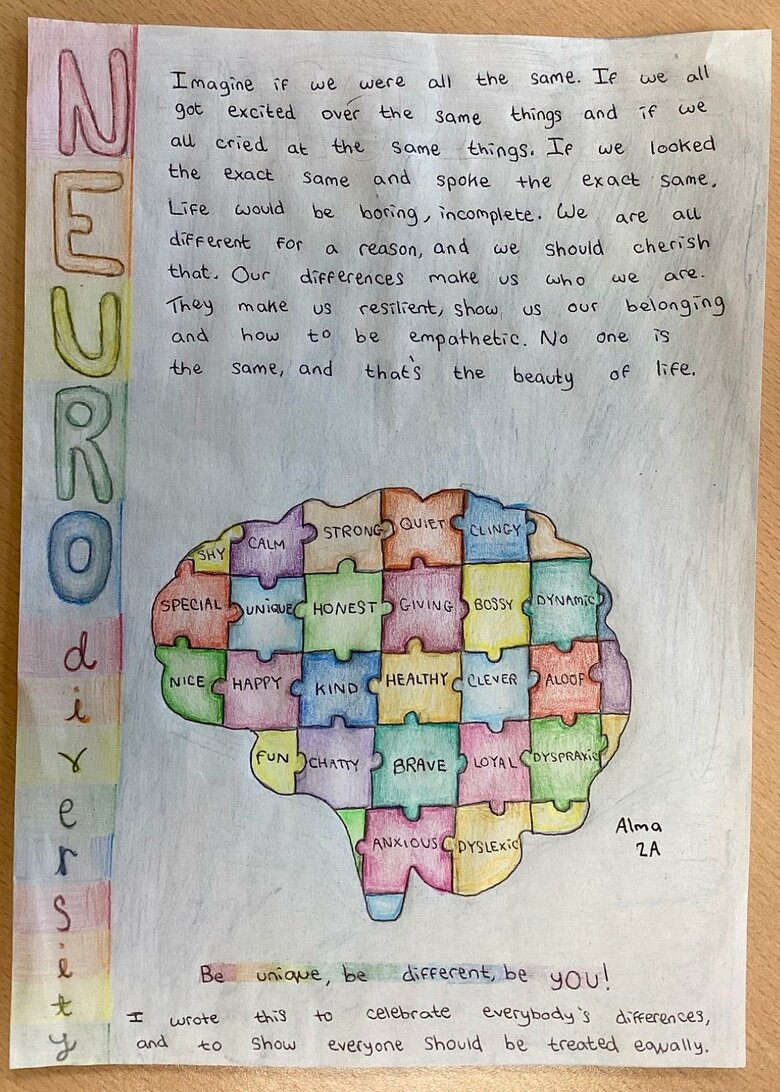 NEUROdiversity
Imagine if we were all the same. If we all
got excited over the same things and if we
all cried at the same things. If we looked
the exact same and spoke the exact same.
Life would be boring, incomplete. We are all
different for a reason, and we should cherish
that. Our differences make us who we are.
They make us resilient, show us our belonging
and how to be empathetic. No one is
the same, and that's the beauty of life.
SHY CALM STRONG QUIET CLINGY
SPECIAL UNIQUE HONEST GIVING BOSSY DYNAMIC
NICE HAPPY KIND HEALTHY CLEVER ALOOF
FUN CHATTY BRAVE LOYAL DYSPRAXIC
ANXIOUS DYSLEXIC
Alma
2A
Be unique, be different, be YOU!
I wrote this to celebrate everybody's differences,
and to show everyone should be treated equally.